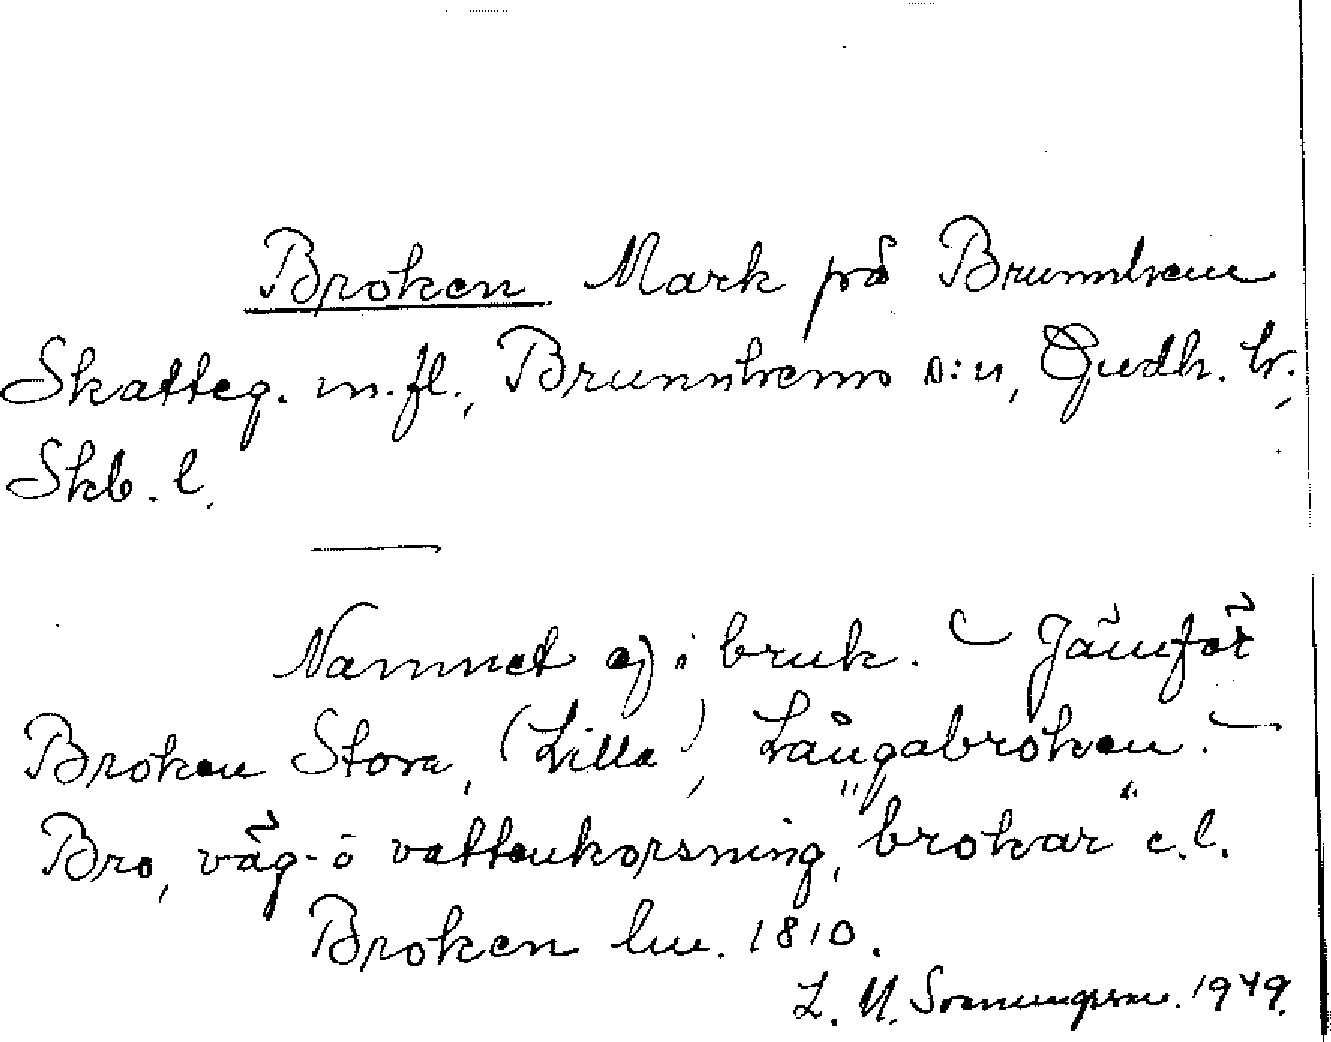 Broken Mark på Brunnhem
Skatteg. m. fl., Brunnhems s:n, Gudh. hr.,
Skb. l.
Namnet ej i bruk. – Jämför
Broken Stora, (Lilla), Långabroken. –
Bro, väg- o vattenkorsning, "brokar" e.l.
Broken lm. 1810.
L. M. 1949.